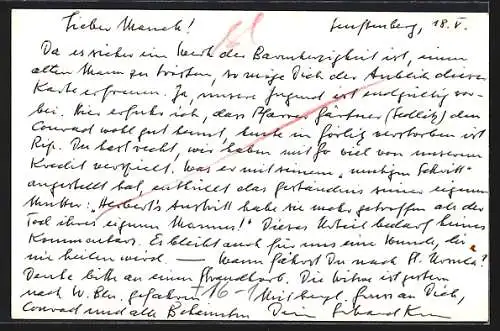 Lieber Manch! Senftenberg, 18. V.
Da es sicher ein Werk der Barmherzigkeit ist, einen
alten Mann zu trösten, so möge Dich der Anblick dieser
Karte erfreuen. Ja, unsere Jugend ist endgültig vor-
bei. Hier erfuhr ich, dass Pfarrer Gärtner (Sollitz) den
Conrad wohl gut kennt, heute in verstorben ist
Rip. Du hast recht, wir haben mit so viel von unserem
Kredit verspielt. Was er mit seinem "mutigen Schritt"
angestellt hat, enthüllt das Geständnis seiner eigenen
Mutter: "Herbert's Austritt habe sie mehr getroffen als der
Tod ihres eigenen Mannes!" Dieses Urteil bedarf keines
Kommentars. Es bleibt auch für uns eine Wunde, die
nie heilen wird. — Wann fährst Du nach St. Ursula?
Denke bitte an einen Strandkorb. Die Witwe ist gestern
nach W. gefahren. Gruss an Dich,
Conrad und alle Bekannten Dein